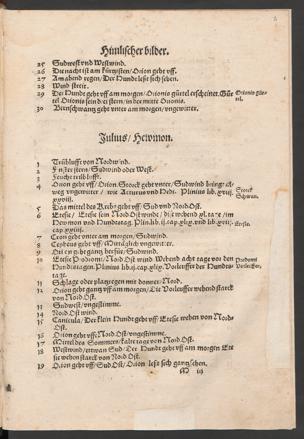 Himlischer bilder.
25 Sudwest vnd Westwind.
26 Die nacht ist am kürtzsten / Orion geht vff.
27 Am abend regen / Der Hunde lest sich sehen.
28 Wind streit.
29 Der Hunde geht vff am morgen / Orionis gürtel erscheinet. Gür
tel Orionis seind iij stern / in der mitte Orionis.
30 Bernschwantz geht vnter am morgen / vngewitter.
Julius / Hewmon.
1 Trüblufft von Nordwind.
2 Finster stern / Sudwind oder West.
3 Feucht trüb lufft.
4 Orion geht vff / Orion. Storck geht vnter / Sudwind bringt
weg vngewitter / wie Arcturus vnd Hedi. Plinius lib. xvij.
xxviij.
Storck
Schwan.
5 Das mittel des Krebs geht vff / Sud vnd Nord Ost.
6 Etesie / Etesie sein Nord Ost winde / die wehend xl. tage / im
Hewmon vnd Hundestag.
Etesie.
7 Cron geht vnter am morgen / Sudwind.
8 Cepheus geht vff / Mutziglich vngewitter.
9 geht gantz herfür / Sudwind.
10 Etesie Prodromi / Nord Ost wind. Wehend acht tage vor den
Hundestagen. Plinius lib. ij. cap. xlix. Vorleuffer der Hundes
tage.
Prodromi
Vorleuffer.
11 Schlage oder platzregen mit donner / Nord.
12 Orion geht gantz vff am morgen / Die Vorleuffer wehend starck
von Nord Ost.
13 Sudwest / vngestümme.
14 Nord Ost wind.
15 Canicula / Der klein Hundt geht vff / Etesie wehen von Nord
Ost.
16 Orion geht vff / Nord Ost / vngestümme.
17 Mittel des Sommers / kalte tage von Nord Ost.
18 Westwind / etwan Sud / Der Hundt geht vff am morgen Ete
sie wehen starck von Nord Ost.
19 Orion geht vff / Sud Ost / Orion lest sich gantz sehen.